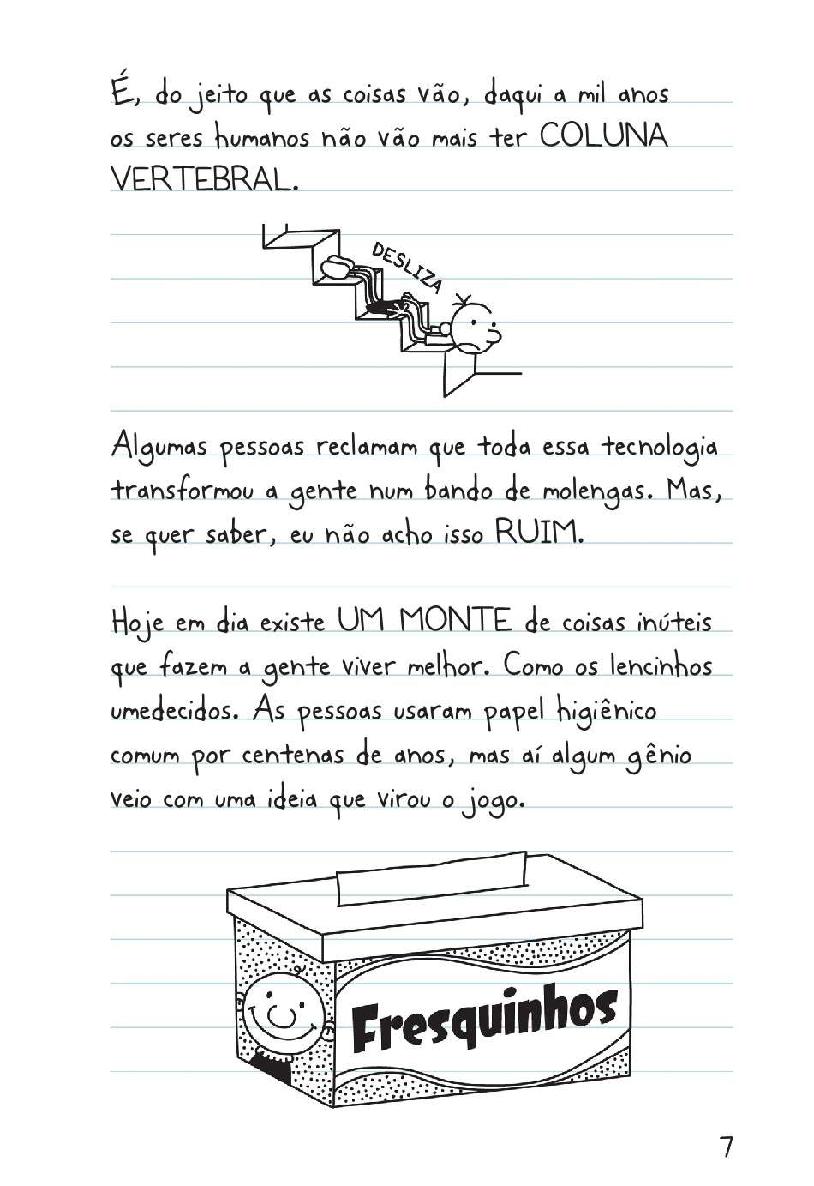 É, do jeito que as coisas vão, daqui a mil anos
os seres humanos não vão mais ter COLUNA
VERTEBRAL.
DESLIZA
Algumas pessoas reclamam que toda essa tecnologia
transformou a gente num bando de molengas. Mas,
se quer saber, eu não acho isso RUIM.
Hoje em dia existe UM MONTE de coisas inúteis
que fazem a gente viver melhor. Como os lencinhos
umedecidos. As pessoas usaram papel higiênico
comum por centenas de anos, mas aí algum gênio
veio com uma ideia que virou o jogo.
Fresquinhos
7